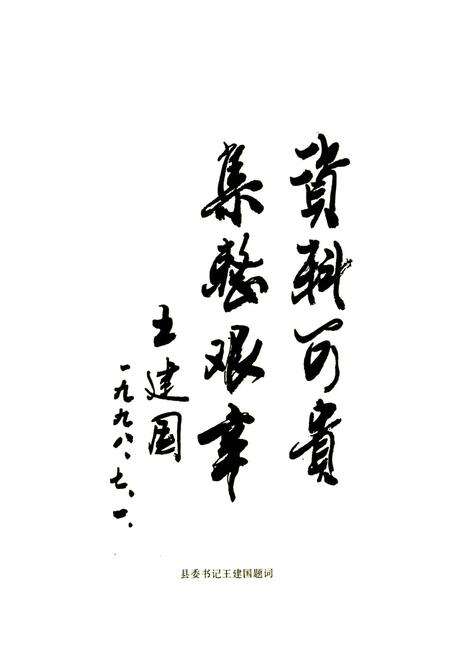 資料可貴
集整艰辛
王建国
一九九八、七、一、
县委书记王建国题词